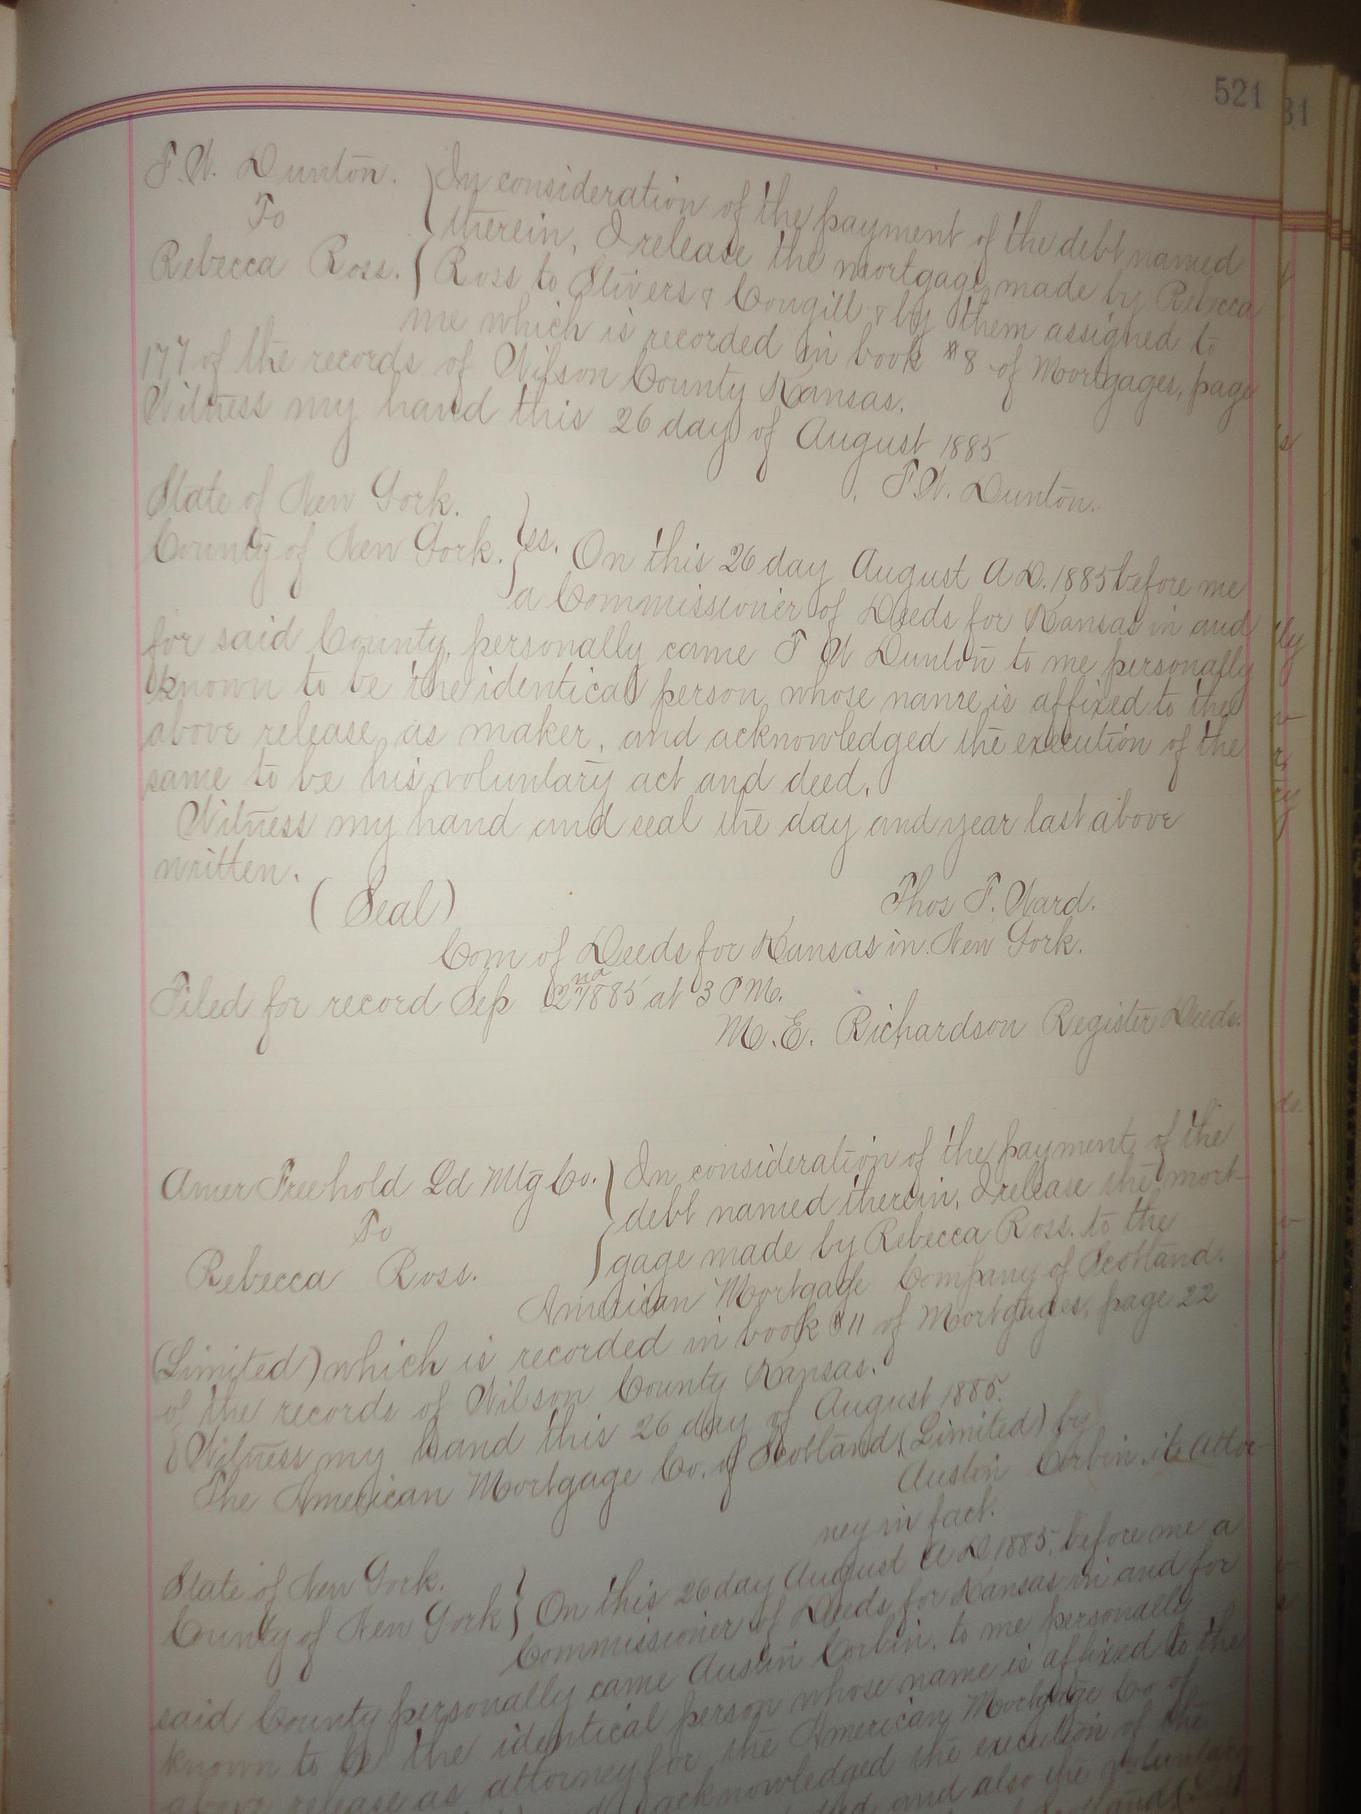 521
31
F. W. Dunton. In consideration of the payment of the debt named
To therein, I release the mortgage made by Rebecca
Rebecca Ross. Ross to Stivers & Cowgill & by them assigned to
me which is recorded in book #8 of Mortgages, page
177 of the records of Wilson County Kansas.
Witness my hand this 26 day of August 1885
F. W. Dunton.
State of New York.
County of New York. ss. On this 26 day August A.D. 1885 before me
a Commissioner of Deeds for Kansas in and
for said County, personally came F W Dunton to me personally
known to be the identical person whose name is affixed to the
above release as maker, and acknowledged the execution of the
same to be his voluntary act and deed.
Witness my hand and seal the day and year last above
written.
(Seal) Thos F. Ward.
Com of Deeds for Kansas in New York.
Filed for record Sep 2nd 1885 at 3 P M.
M. E. Richardson Register Deeds.
Amer Freehold Ld Mtg Co. In consideration of the payment of the
debt named therein, I release the mort-
To
gage made by Rebecca Ross. to the
Rebecca Ross.
American Mortgage Company of Scotland.
(Limited) which is recorded in book #11 of Mortgages, page 22
of the records of Wilson County Kansas.
Witness my hand this 26 day of August 1885.
The American Mortgage Co. of Scotland (Limited) by
Austin Corbin its Attor
ney in fact.
State of New York.
County of New York On this 26 day August A D 1885, before me a
Commissioner of Deeds for Kansas in and for
said County personally came Austin Corbin, to me personally
known to be the identical person whose name is affixed to the
above release as attorney for the American Mortgage Co of
acknowledged the execution of the
and also the voluntary